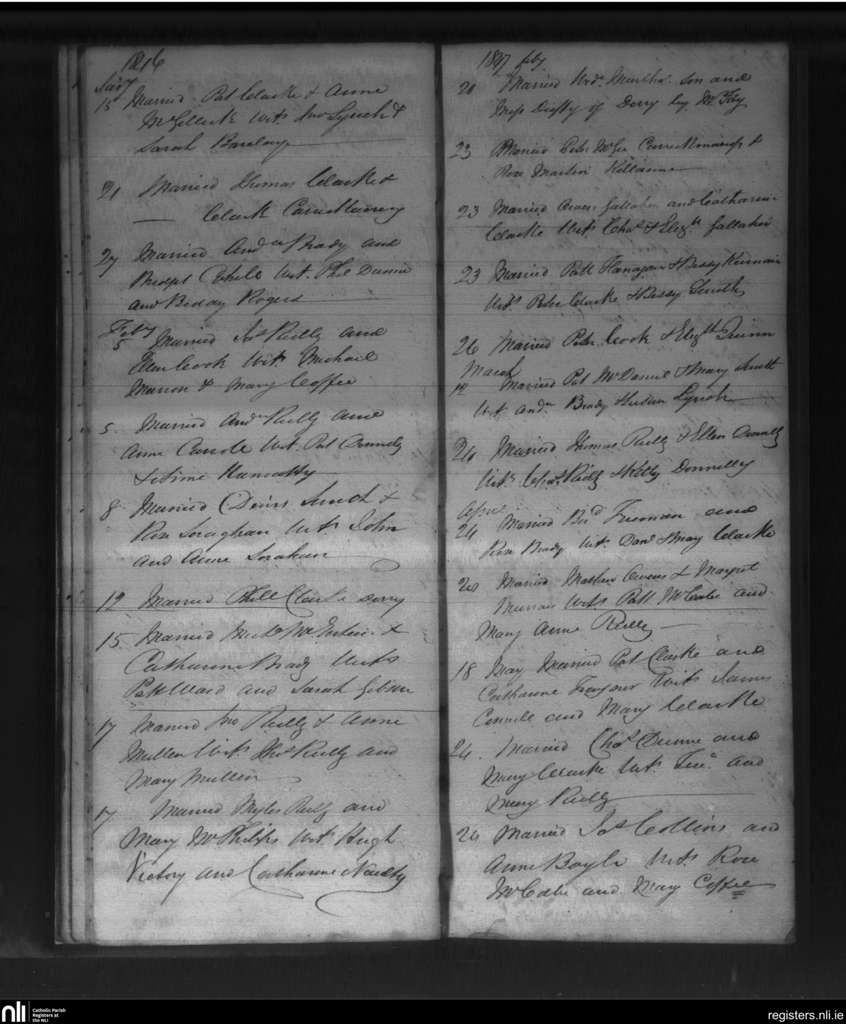 1816
Jany
15 Married Pat Clarke & Anne
McGellick Wits Jno Lynch &
Sarah
21 Married Thomas Clarke &
Clark
27 Married Andw Brady and
Bridget Wit. Phil
and Biddy Rogers
Feby
5 Married Jas Reilly and
Ellen Cook Wits Michael
& Mary Coffee
5 Married Andw Reilly and
Anne Carrole Wit. Pat Donnely
& Anne
8 Married Denis Smith &
Rose Soraghan Wits John
and Anne Sorahan
12 Married Phill Clarke Derry
15 Married &
Catharine Brady Wits
Patt Ward and Sarah Gibson
17 Married Jno Reilly & Anne
Mullen Wits Thos Reilly and
Mary Mullin
17 Married Myles Reilly and
Mary McPhilips Wits Hugh
Victory and Catharine
1817 feby
20 Married and
Miss Duffy of Derry by Mr
23 Married Peter McGee &
Rose Martin
23 Married Owen Gallaher and Catharine
Clarke Wits Chas & Elizth Gallaher
23 Married Patt Flanagan & Bessy
Wits Peter Clarke & Bessy Smith
26 Married Peter Cook & Elizth Quinn
March
12 Married Pat McDaniel & Mary Smith
Wit Andw Brady & Susan Lynch
24 Married Thomas Reilly & Ellen Donnelly
Wits Chas Reilly & Kitty Donnelly
April
24 Married Brd Freeman and
Rose Brady Wit. Danl & Mary Clarke
20 Married Mathew Owens & Margret
Wits Patt McCabe and
Mary Anne Reilly
18 May Married Pat Clarke and
Catharine Wits James
and Mary Clarke
24. Married Chas Dunne and
Mary Clarke Wits and
Mary Reilly
20 Married Jas Collins and
Anne Boyle Wits Rose
McCabe and Mary Coffee
nli
Catholic Parish
Registers at
the NLI
registers.nli.ie